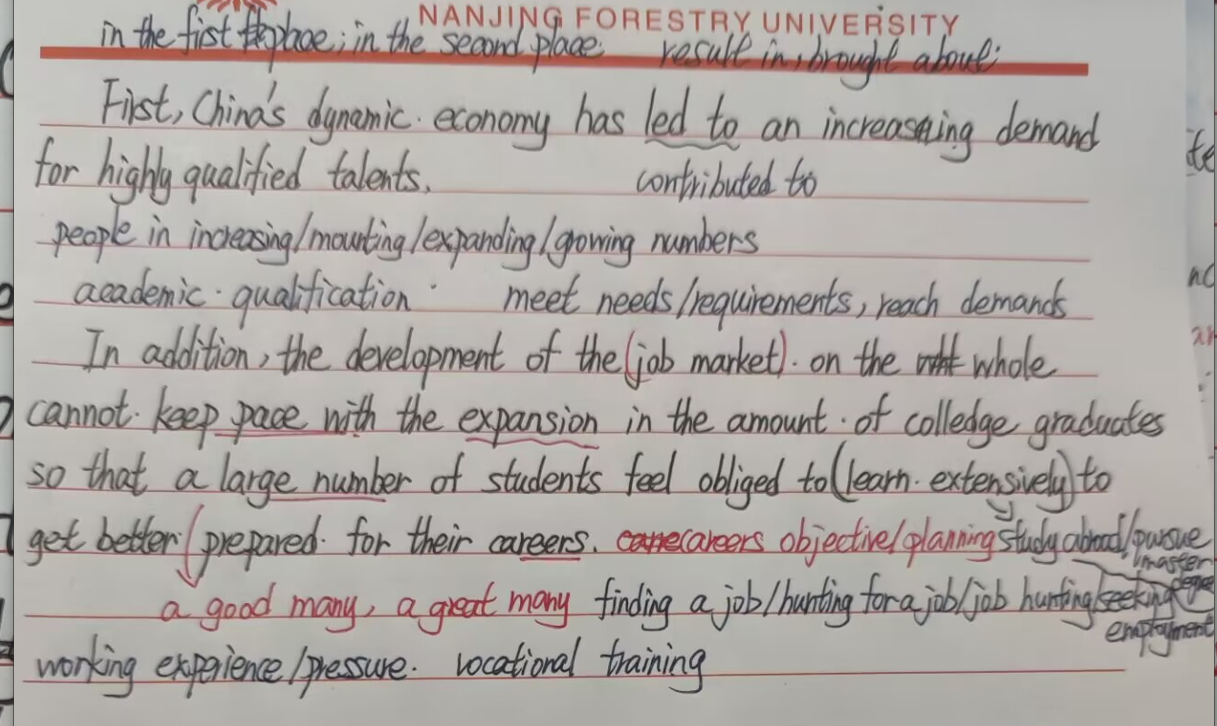 NANJING FORESTRY UNIVERSITY
in the first place; in the second place: result in, brought about:
First, China's dynamic economy has led to an increasing demand
for highly qualified talents. contributed to
people in increasing/mounting/expanding/growing numbers
academic qualification meet needs/requirements, reach demands
In addition, the development of the (job market) on the whole
cannot keep pace with the expansion in the amount of colledge graduates
so that a large number of students feel obliged to (learn extensively) to
get better prepared for their careers. careers objective/planning study abroad/pursue
master degree
a good many, a great many finding a job/hunting for a job/job hunting/seeking
employment
working experience/pressure. vocational training